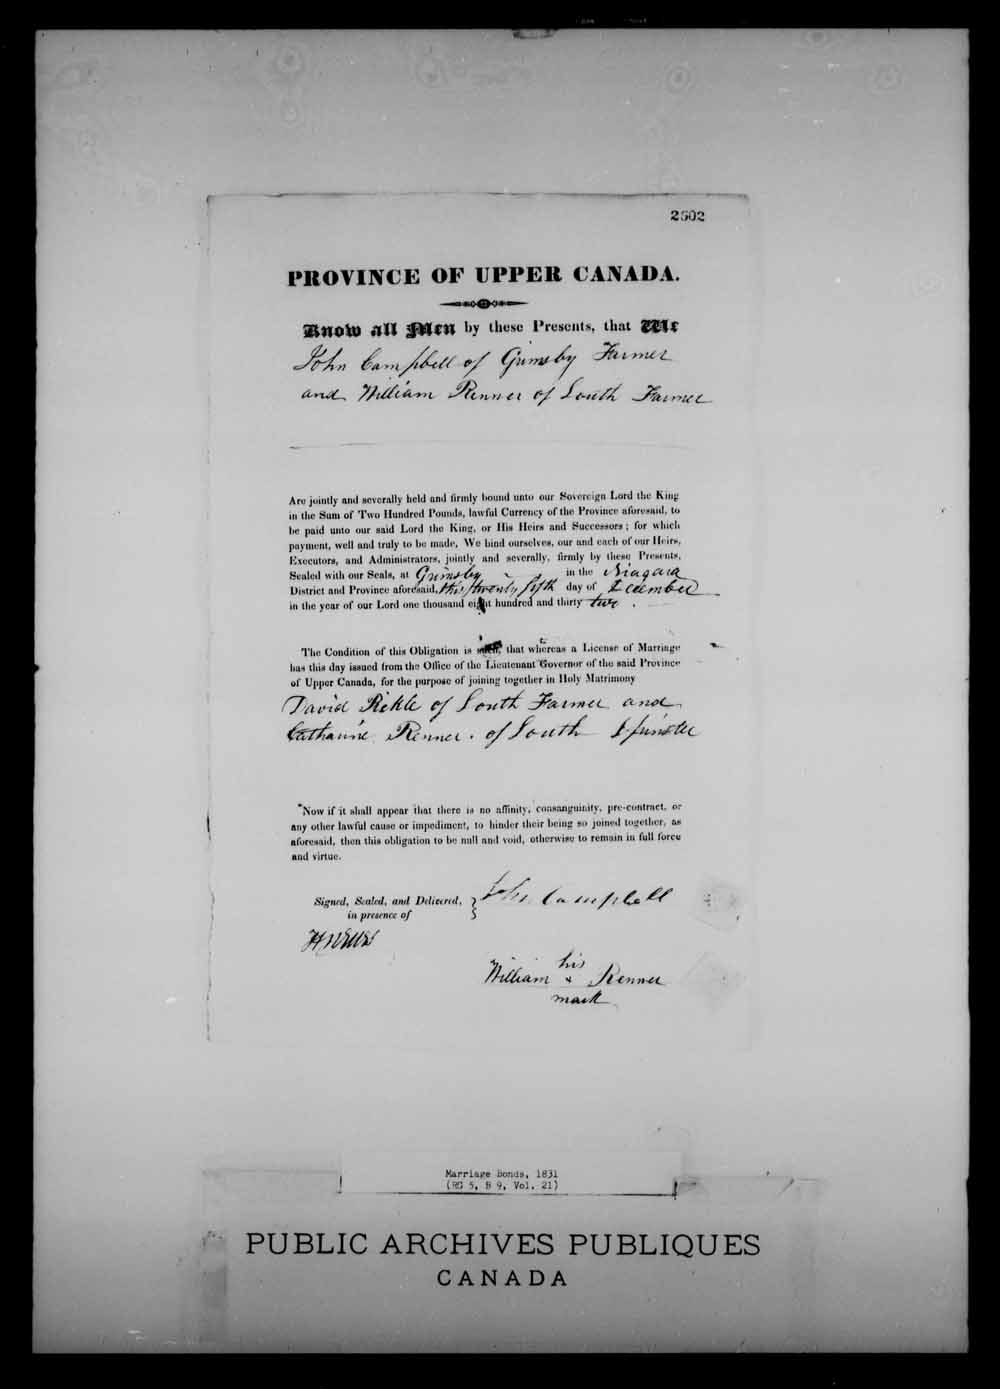 2602
PROVINCE OF UPPER CANADA.
Know all Men by these Presents, that We
John Campbell of Grimsby Farmer
and William Renner of Louth Farmer
Are jointly and severally held and firmly bound unto our Sovereign Lord the King
in the Sum of Two Hundred Pounds, lawful Currency of the Province aforesaid, to
be paid unto our said Lord the King, or His Heirs and Successors; for which
payment, well and truly to be made, We bind ourselves, our and each of our Heirs,
Executors, and Administrators, jointly and severally, firmly by these Presents,
Sealed with our Seals, at Grimsby in the Niagara
District and Province aforesaid, this twenty fifth day of December
in the year of our Lord one thousand eight hundred and thirty two.
The Condition of this Obligation is such, that whereas a License of Marriage
has this day issued from the Office of the Lieutenant Governor of the said Province
of Upper Canada, for the purpose of joining together in Holy Matrimony
David Rickle of Louth Farmer and
Catharine Renner. of Louth Spinster
Now if it shall appear that there is no affinity, consanguinity, pre-contract, or
any other lawful cause or impediment, to hinder their being so joined together, as
aforesaid, then this obligation to be null and void, otherwise to remain in full force
and virtue.
Signed, Sealed, and Delivered, } John Campbell
in presence of
his
William x Renner
mark
Marriage Bonds, 1831
(RG 5, B 9, Vol. 21)
PUBLIC ARCHIVES PUBLIQUES
CANADA